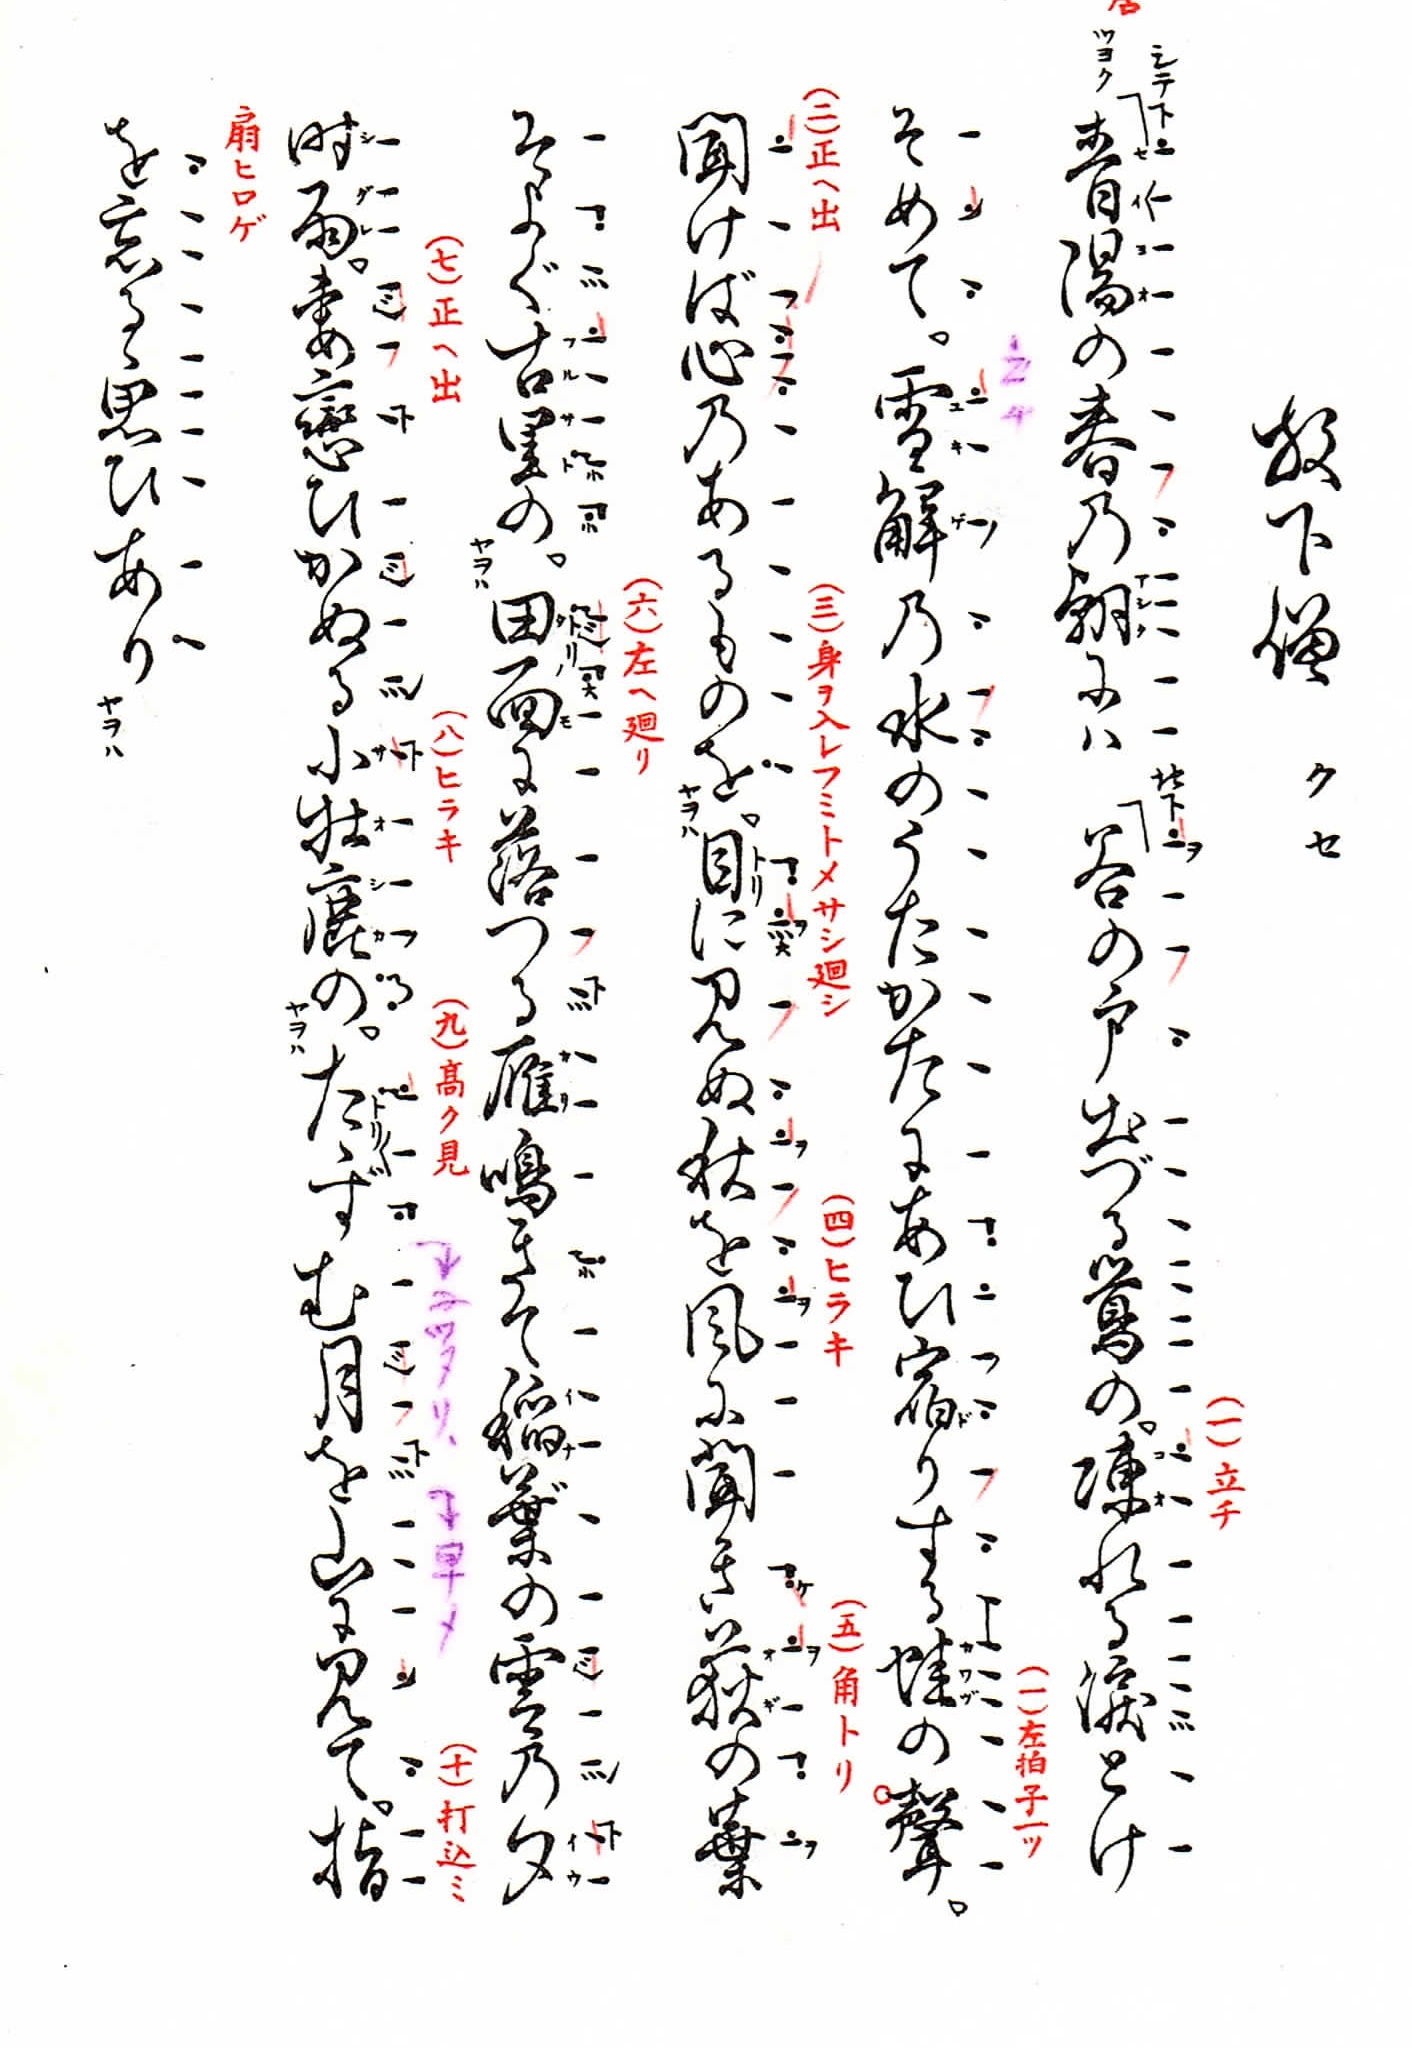 放下僧 クセ
居
シテ下
ツヨク
青陽の春乃朝にハ
地下
谷の戸出づる鶯の。凍れる涙とけ
(一)立チ
そめて。雪解乃水のうたかたにあひ宿りする蛙の聲。
立チ
(一)左拍子一ツ
聞けば心乃あるものを。目に見ぬ秋を風に聞き荻の葉
ヤヲハ
(二)正ヘ出
(三)身ヲ入レフミトメサシ廻シ
(四)ヒラキ
(五)角トリ
そよぐ古里の。田面に落つる雁鳴きて稲葉の雲乃夕
ヤヲハ
(六)左ヘ廻リ
時雨。妻戀ひかぬる小牡鹿の。たゝずむ月を山に見て。指
ヤヲハ
(七)正ヘ出
(八)ヒラキ
(九)髙ク見
(十)打込ミ
扇ヒロゲ
を忘るゝ思ひあり
ヤヲハ